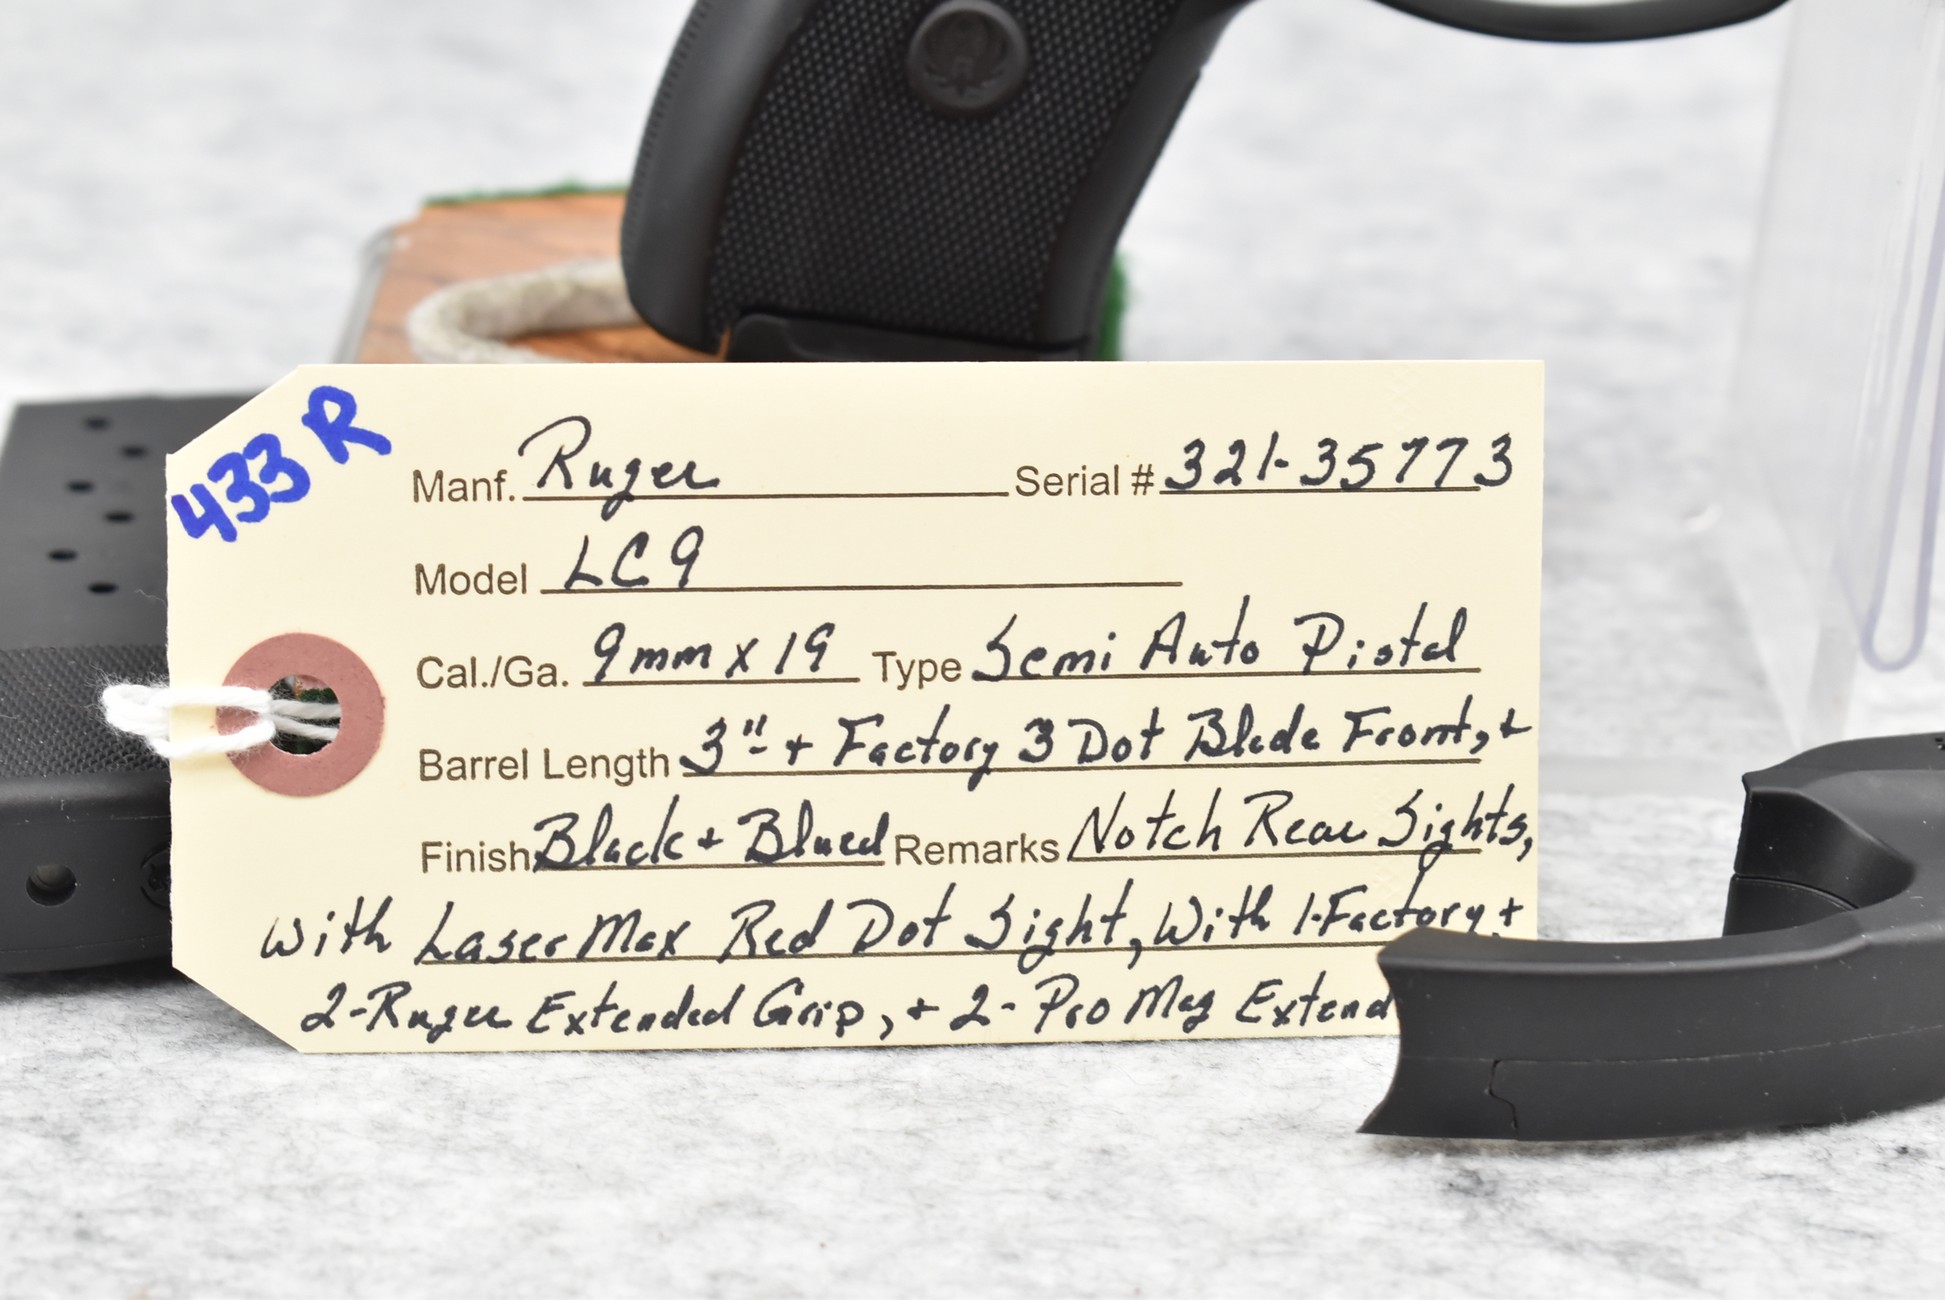 433 R
Manf. Ruger Serial # 321-35773
Model LC9
Cal./Ga. 9mm x 19 Type Semi Auto Pistol
Barrel Length 3" + Factory 3 Dot Blade Front, +
Finish Black + Blued Remarks Notch Rear Sights,
With LaserMax Red Dot Sight, With 1-Factory, +
2-Ruger Extended Grip, + 2- Pro Mag Extend